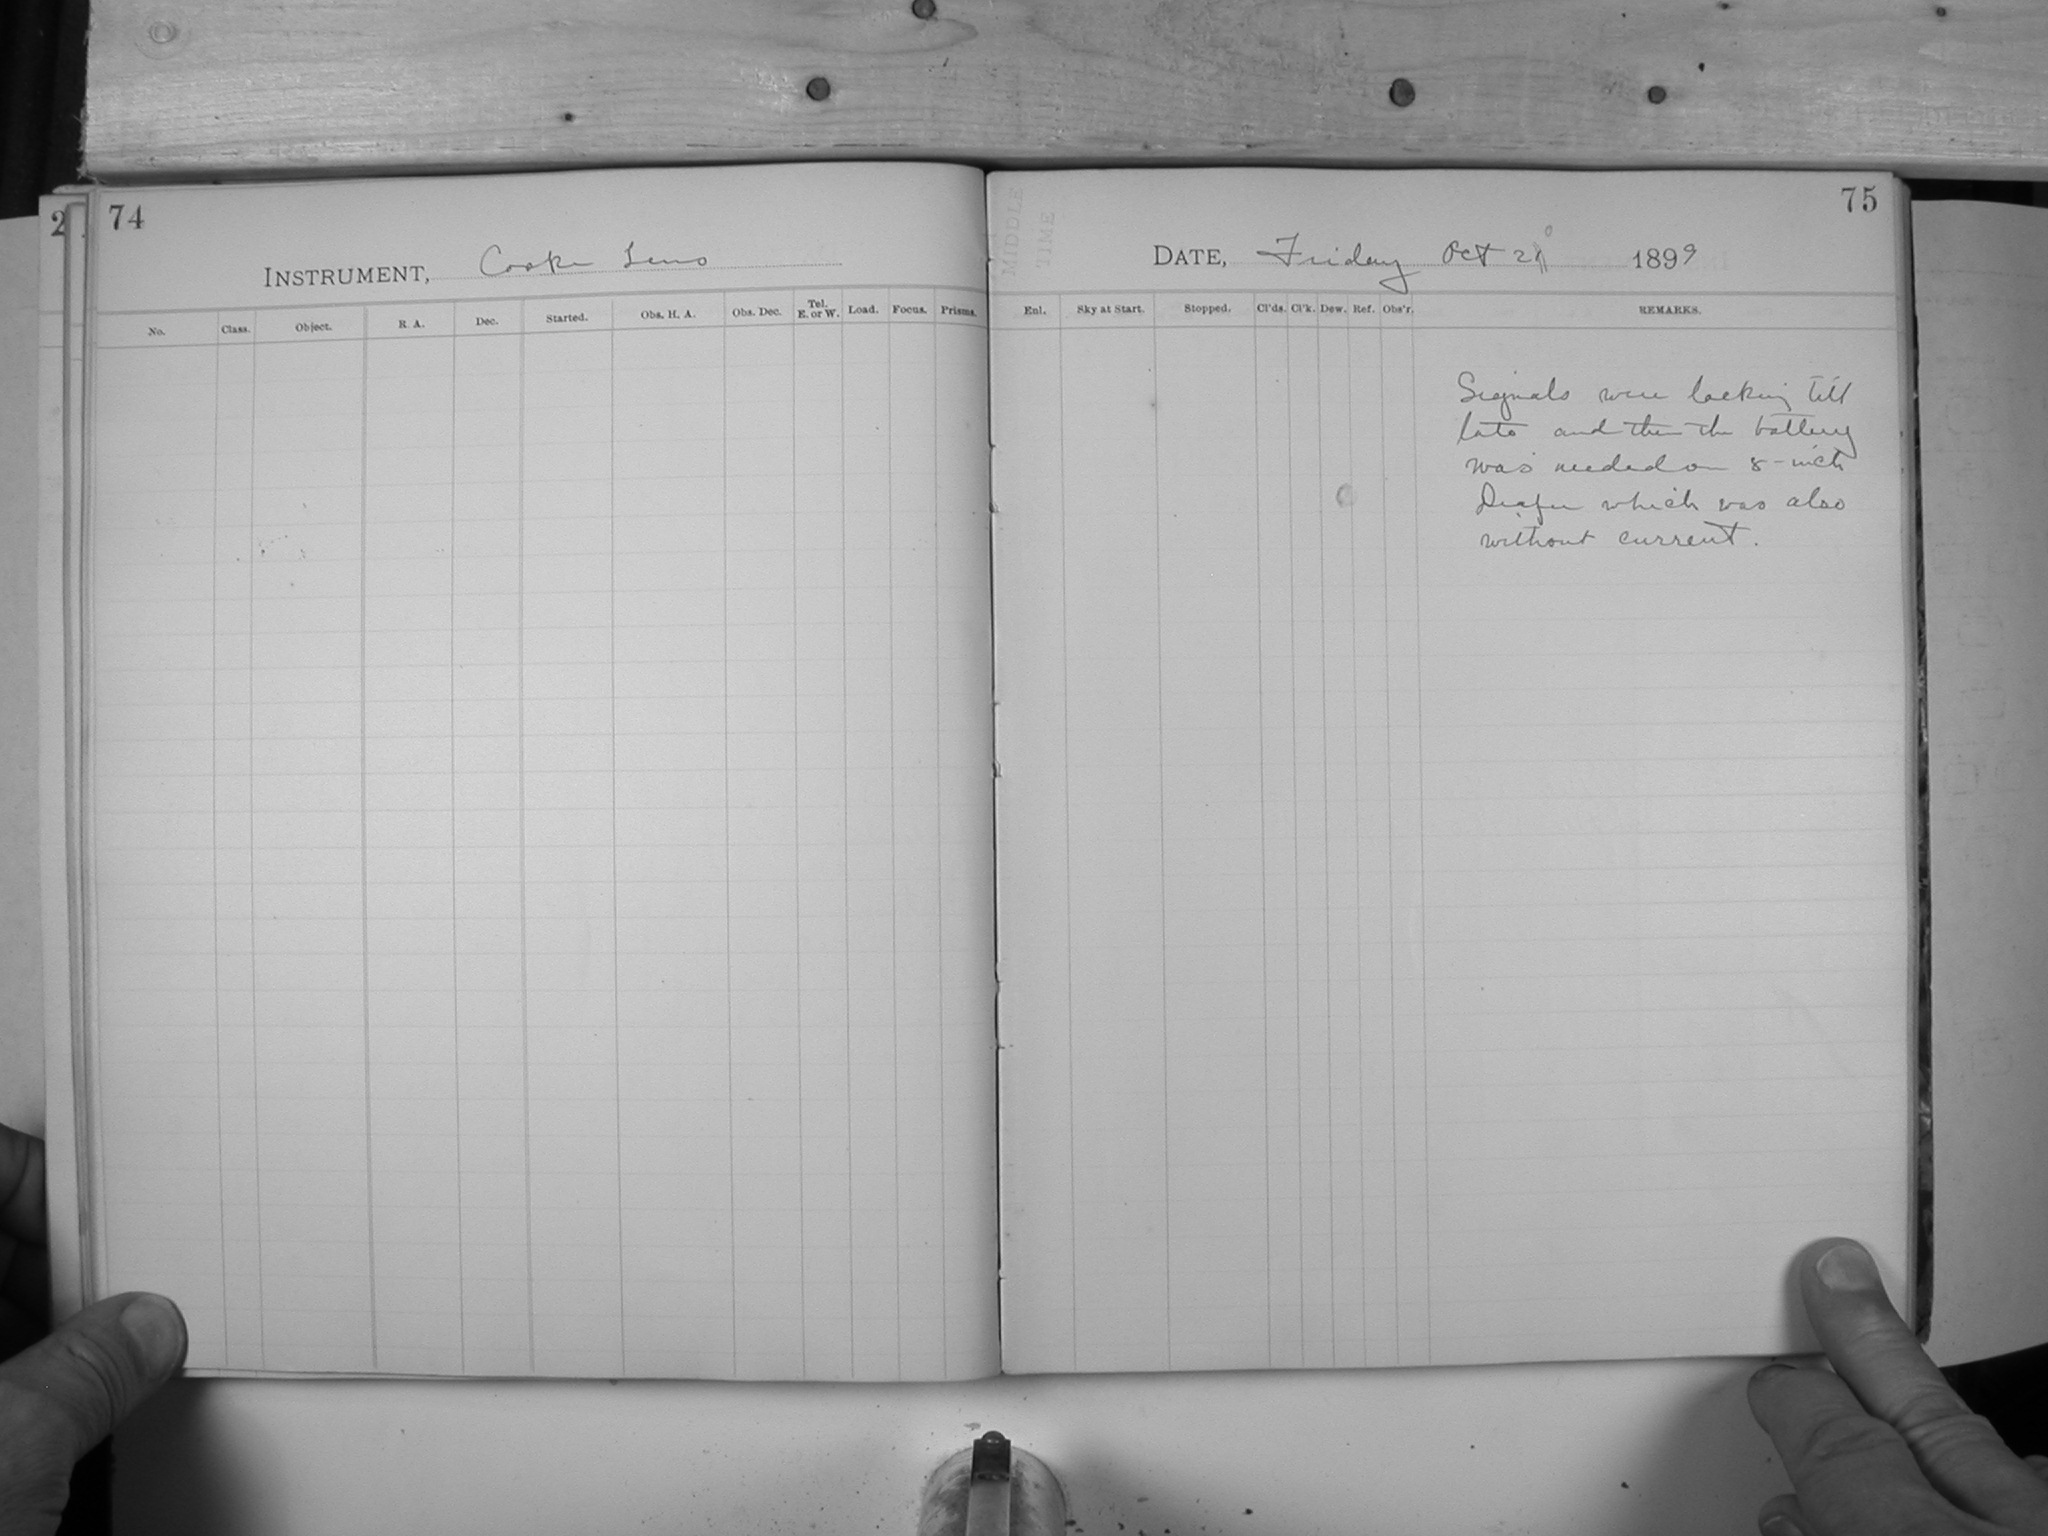 2
74
INSTRUMENT, Cooke Lens
No. Class. Object. R. A. Dec. Started. Obs. H. A. Obs. Dec. Tel. E. or W. Load. Focus. Prisms.
MIDDLE
TIME
75
DATE, Friday Oct 20 1899
Enl. Sky at Start. Stopped. Cl'ds. Cl'k. Dew. Ref. Obs'r. REMARKS.
Signals were lacking till
late and then the battery
was needed on 8-inch
Draper which was also
without current.